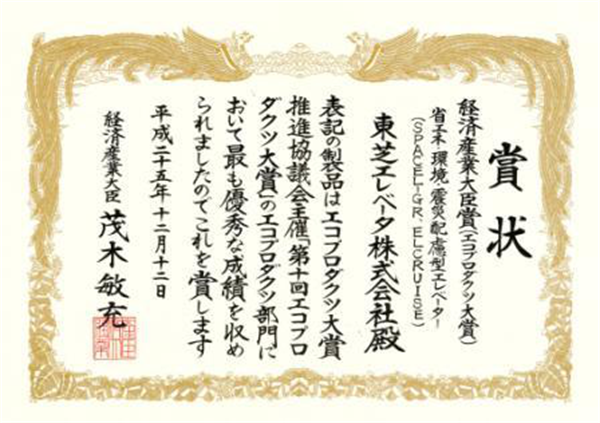 賞状
経済産業大臣賞(エコプロダクツ大賞)
省エネ・環境・震災配慮型エレベーター
(SPACEL-GR、ELCRUISE)
東芝エレベータ株式会社殿
表記の製品はエコプロダクツ大賞
推進協議会主催「第十回エコプロ
ダクツ大賞」のエコプロダクツ部門に
おいて最も優秀な成績を収め
られましたのでこれを賞します
平成二十五年十二月十二日
経済産業大臣 茂木敏充